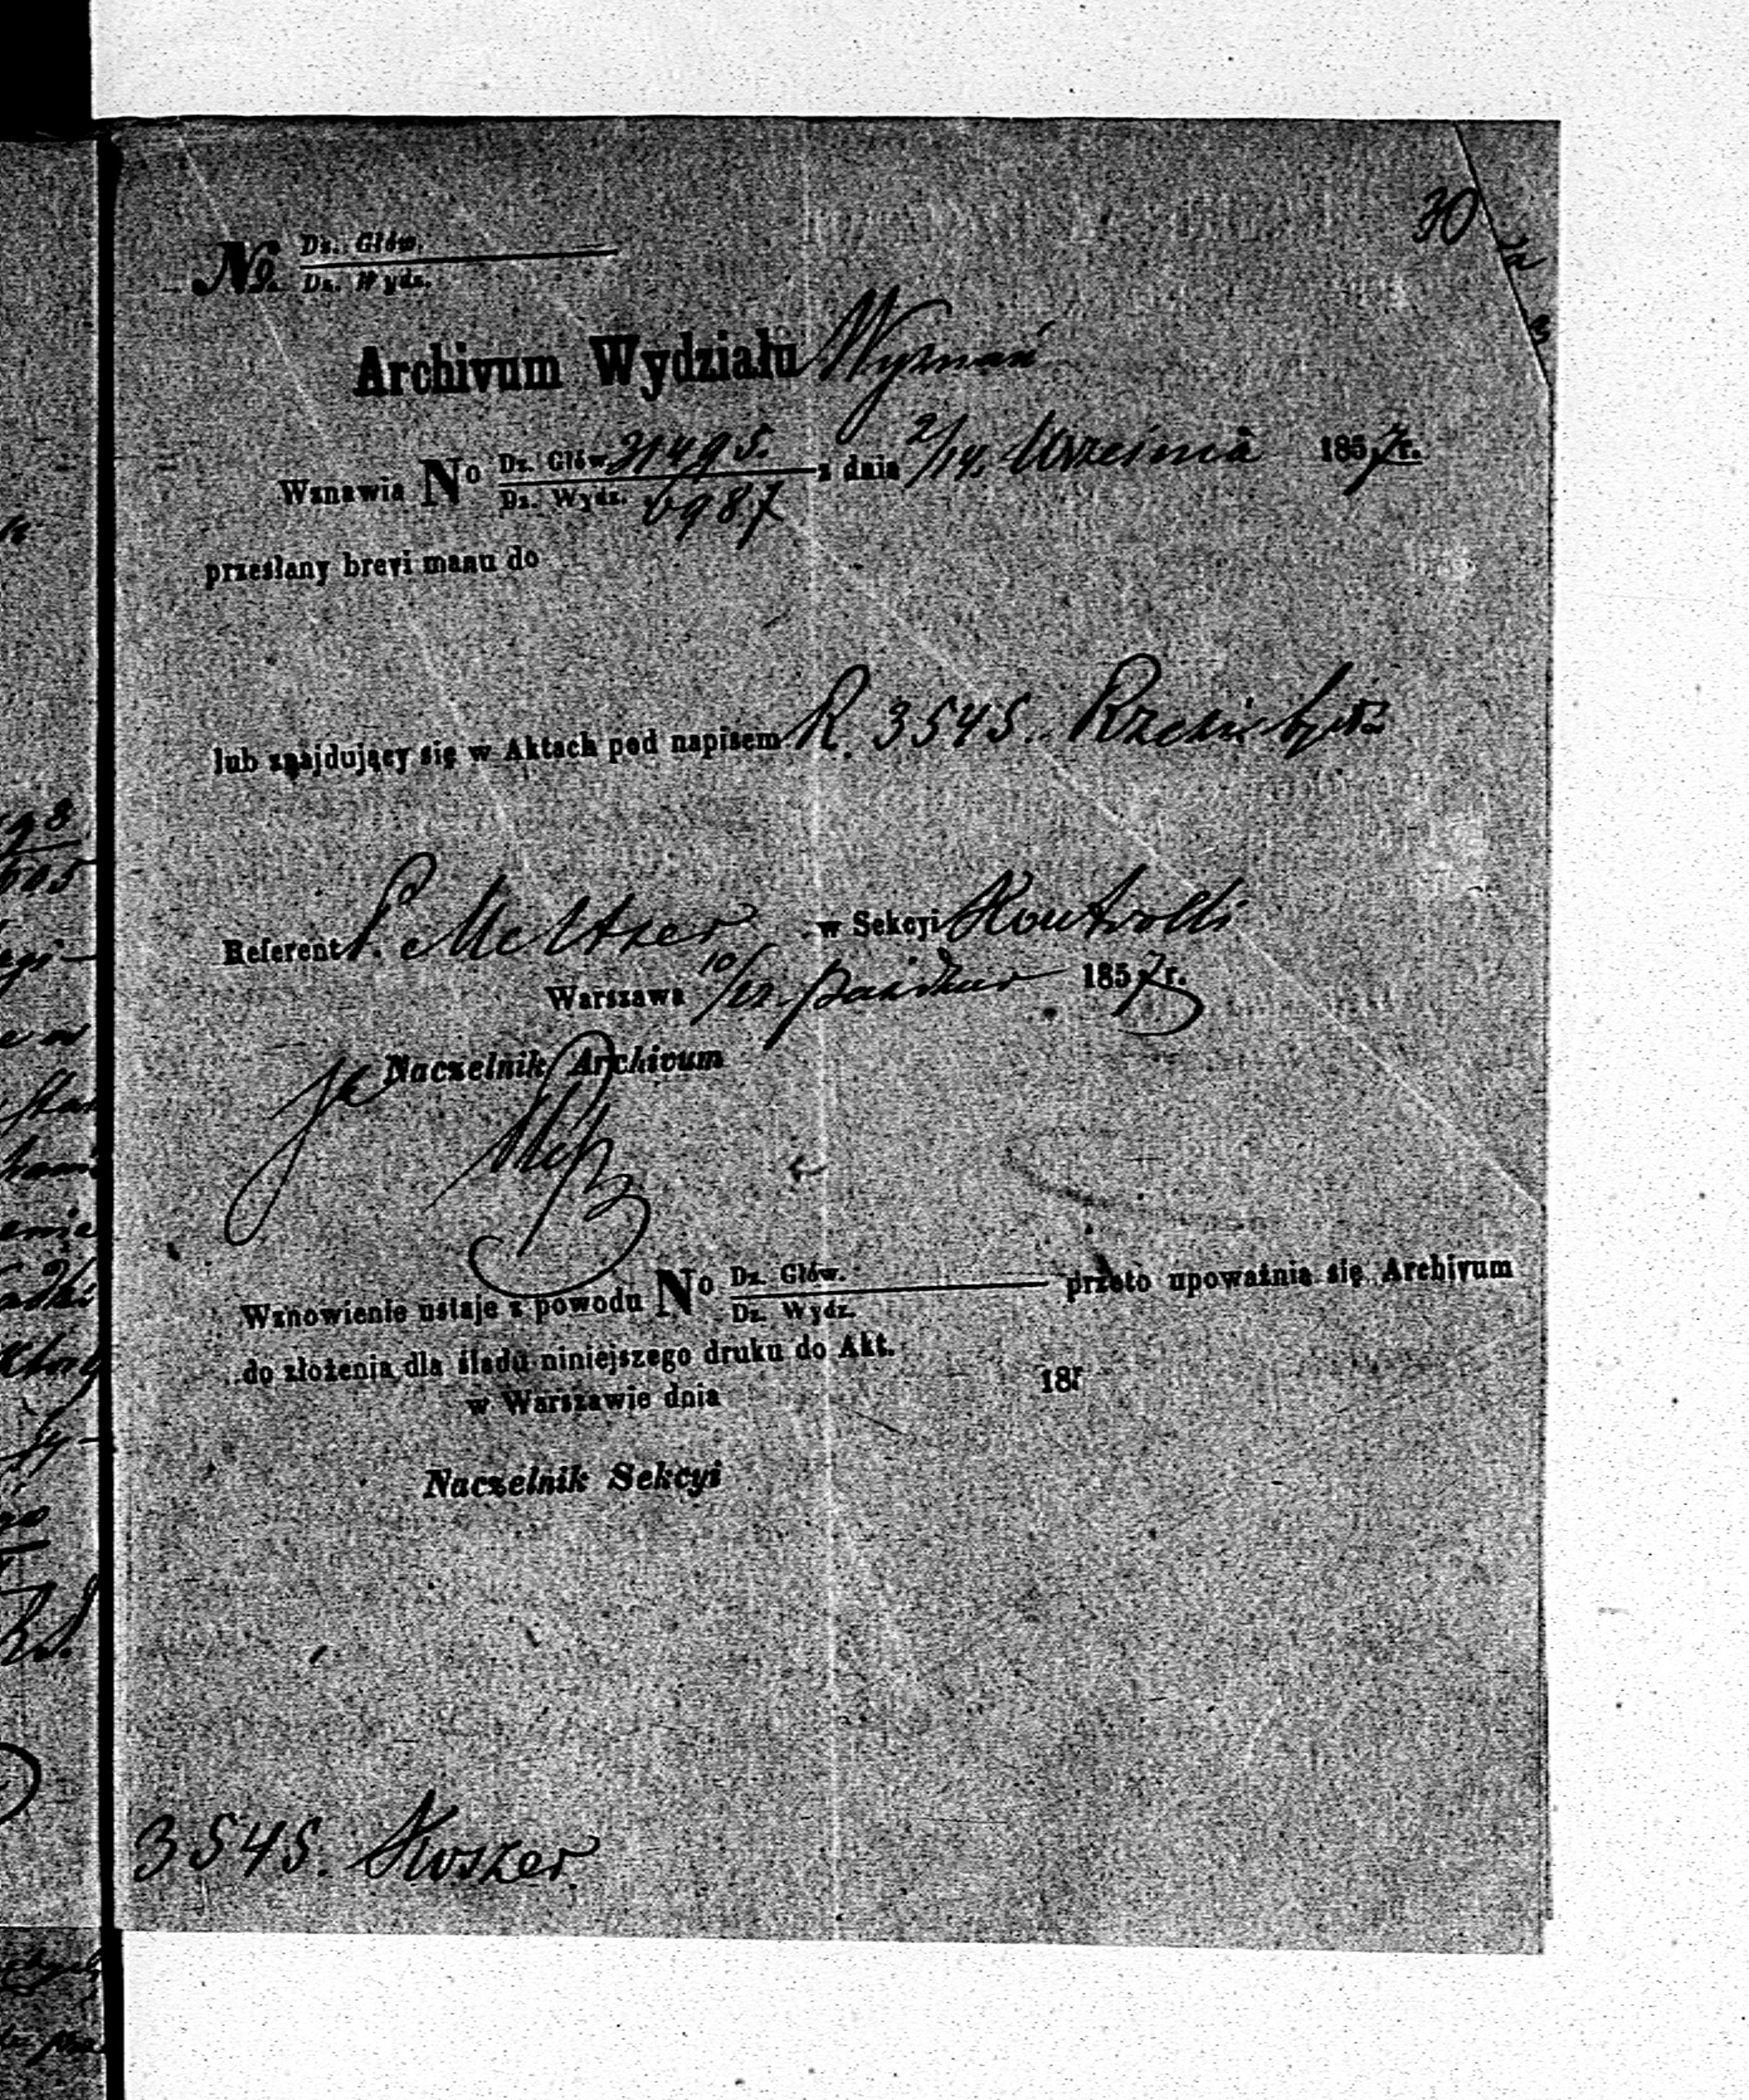 30
No. Dz. Głów.
Dz. Wydz.
Archivum Wydziału Wyznań
Wznawia No Dz. Głów. 21495. z dnia 2/14. Września 1857 r.
Dz. Wydz. 6987
przesłany brevi manu do
lub znajdujący się w Aktach pod napisem R. 3545.
Referent P. Meltzer w Sekcyi Kontrolli
Warszawa 10/22. paździer 1857 r.
Naczelnik Archivum
Wznowienie ustaje z powodu No Dz. Głów. przeto upoważnia się Archivum
Dz. Wydz.
do złożenia dla śladu niniejszego druku do Akt.
w Warszawie dnia 18 r
Naczelnik Sekcyi
3545. Koszer